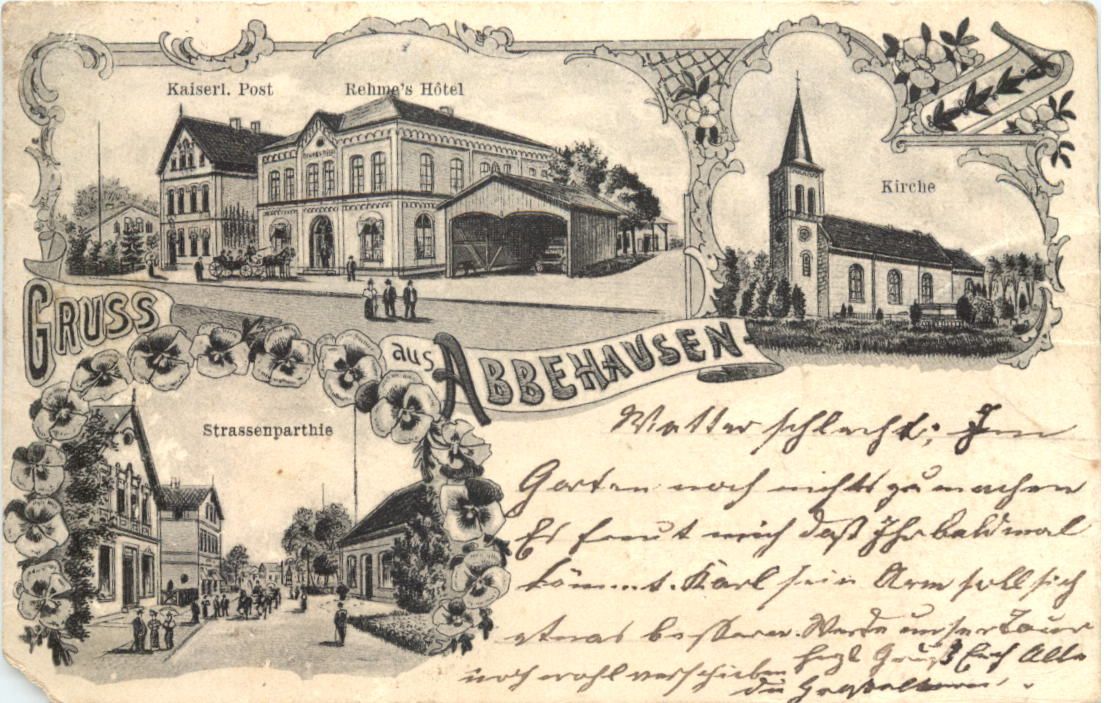 Kaiserl. Post
Rehme's Hôtel
Kirche
GRUSS
aus ABBEHAUSEN
Strassenparthie
Wetter schlecht; Im
Garten noch nichts zu machen
Es freut mich daß Ihr bald mal
kömmt. Karl sein Arm soll sich
etwas bessern. Werde unser Tour
noch wohl verschieben
herzl Gruß Euch Alle
die